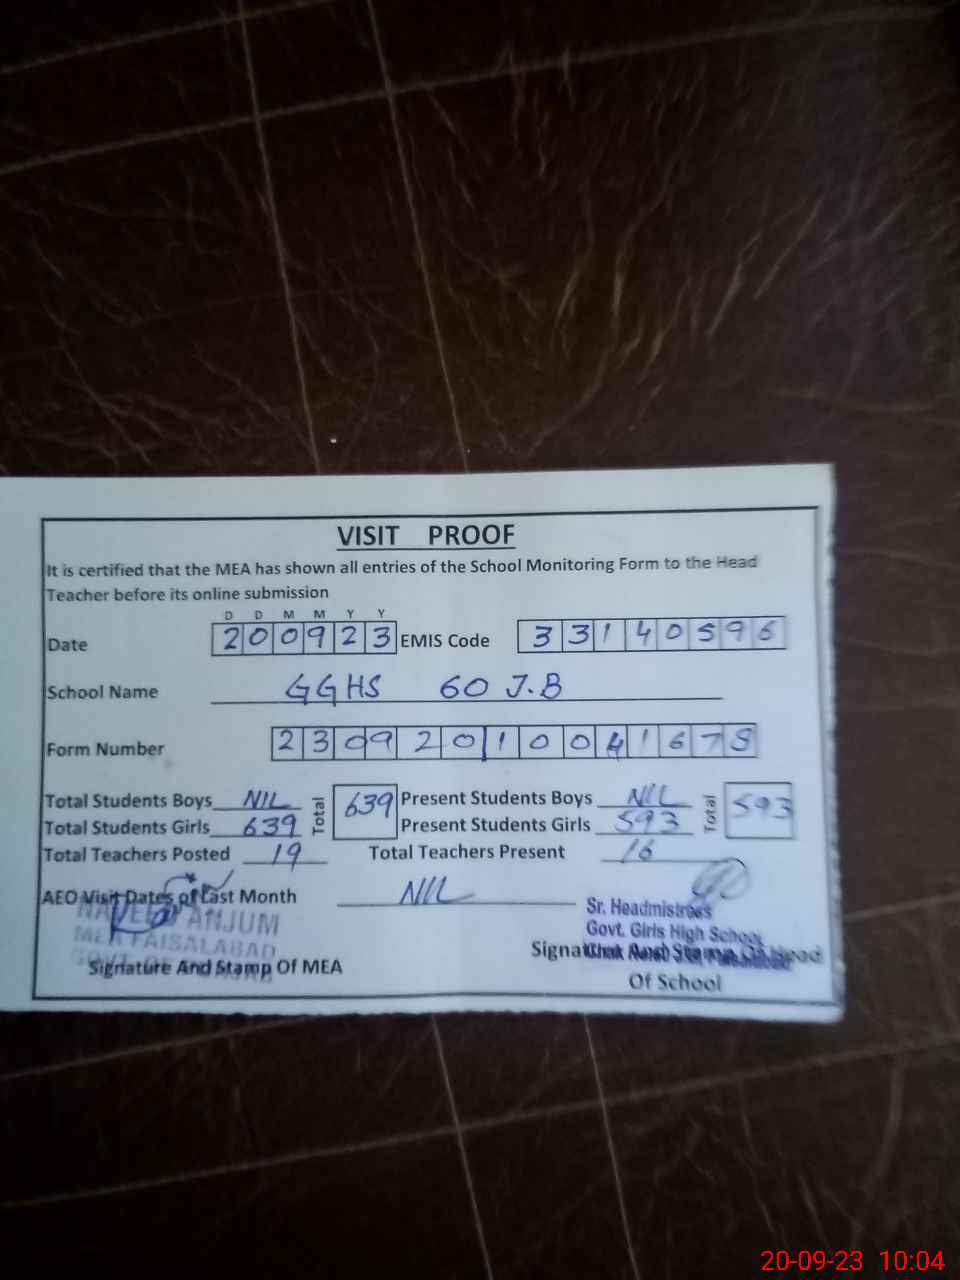 VISIT PROOF
It is certified that the MEA has shown all entries of the School Monitoring Form to the Head
Teacher before its online submission
D D M M Y Y
Date 200923 EMIS Code 33140596
School Name GGHS 60 J.B
Form Number 2309201004167
Total Students Boys NIL Total 639 Present Students Boys NIL Total 593
Total Students Girls 639 Present Students Girls 593
Total Teachers Posted 19 Total Teachers Present 16
AEO Visit Dates of Last Month NIL
ANJUM
MEA FAISALABAD
Signature And Stamp Of MEA
Sr. Headmistress
Govt. Girls High School
Signature And Stamp Of Head
Of School
20-09-23 10:04